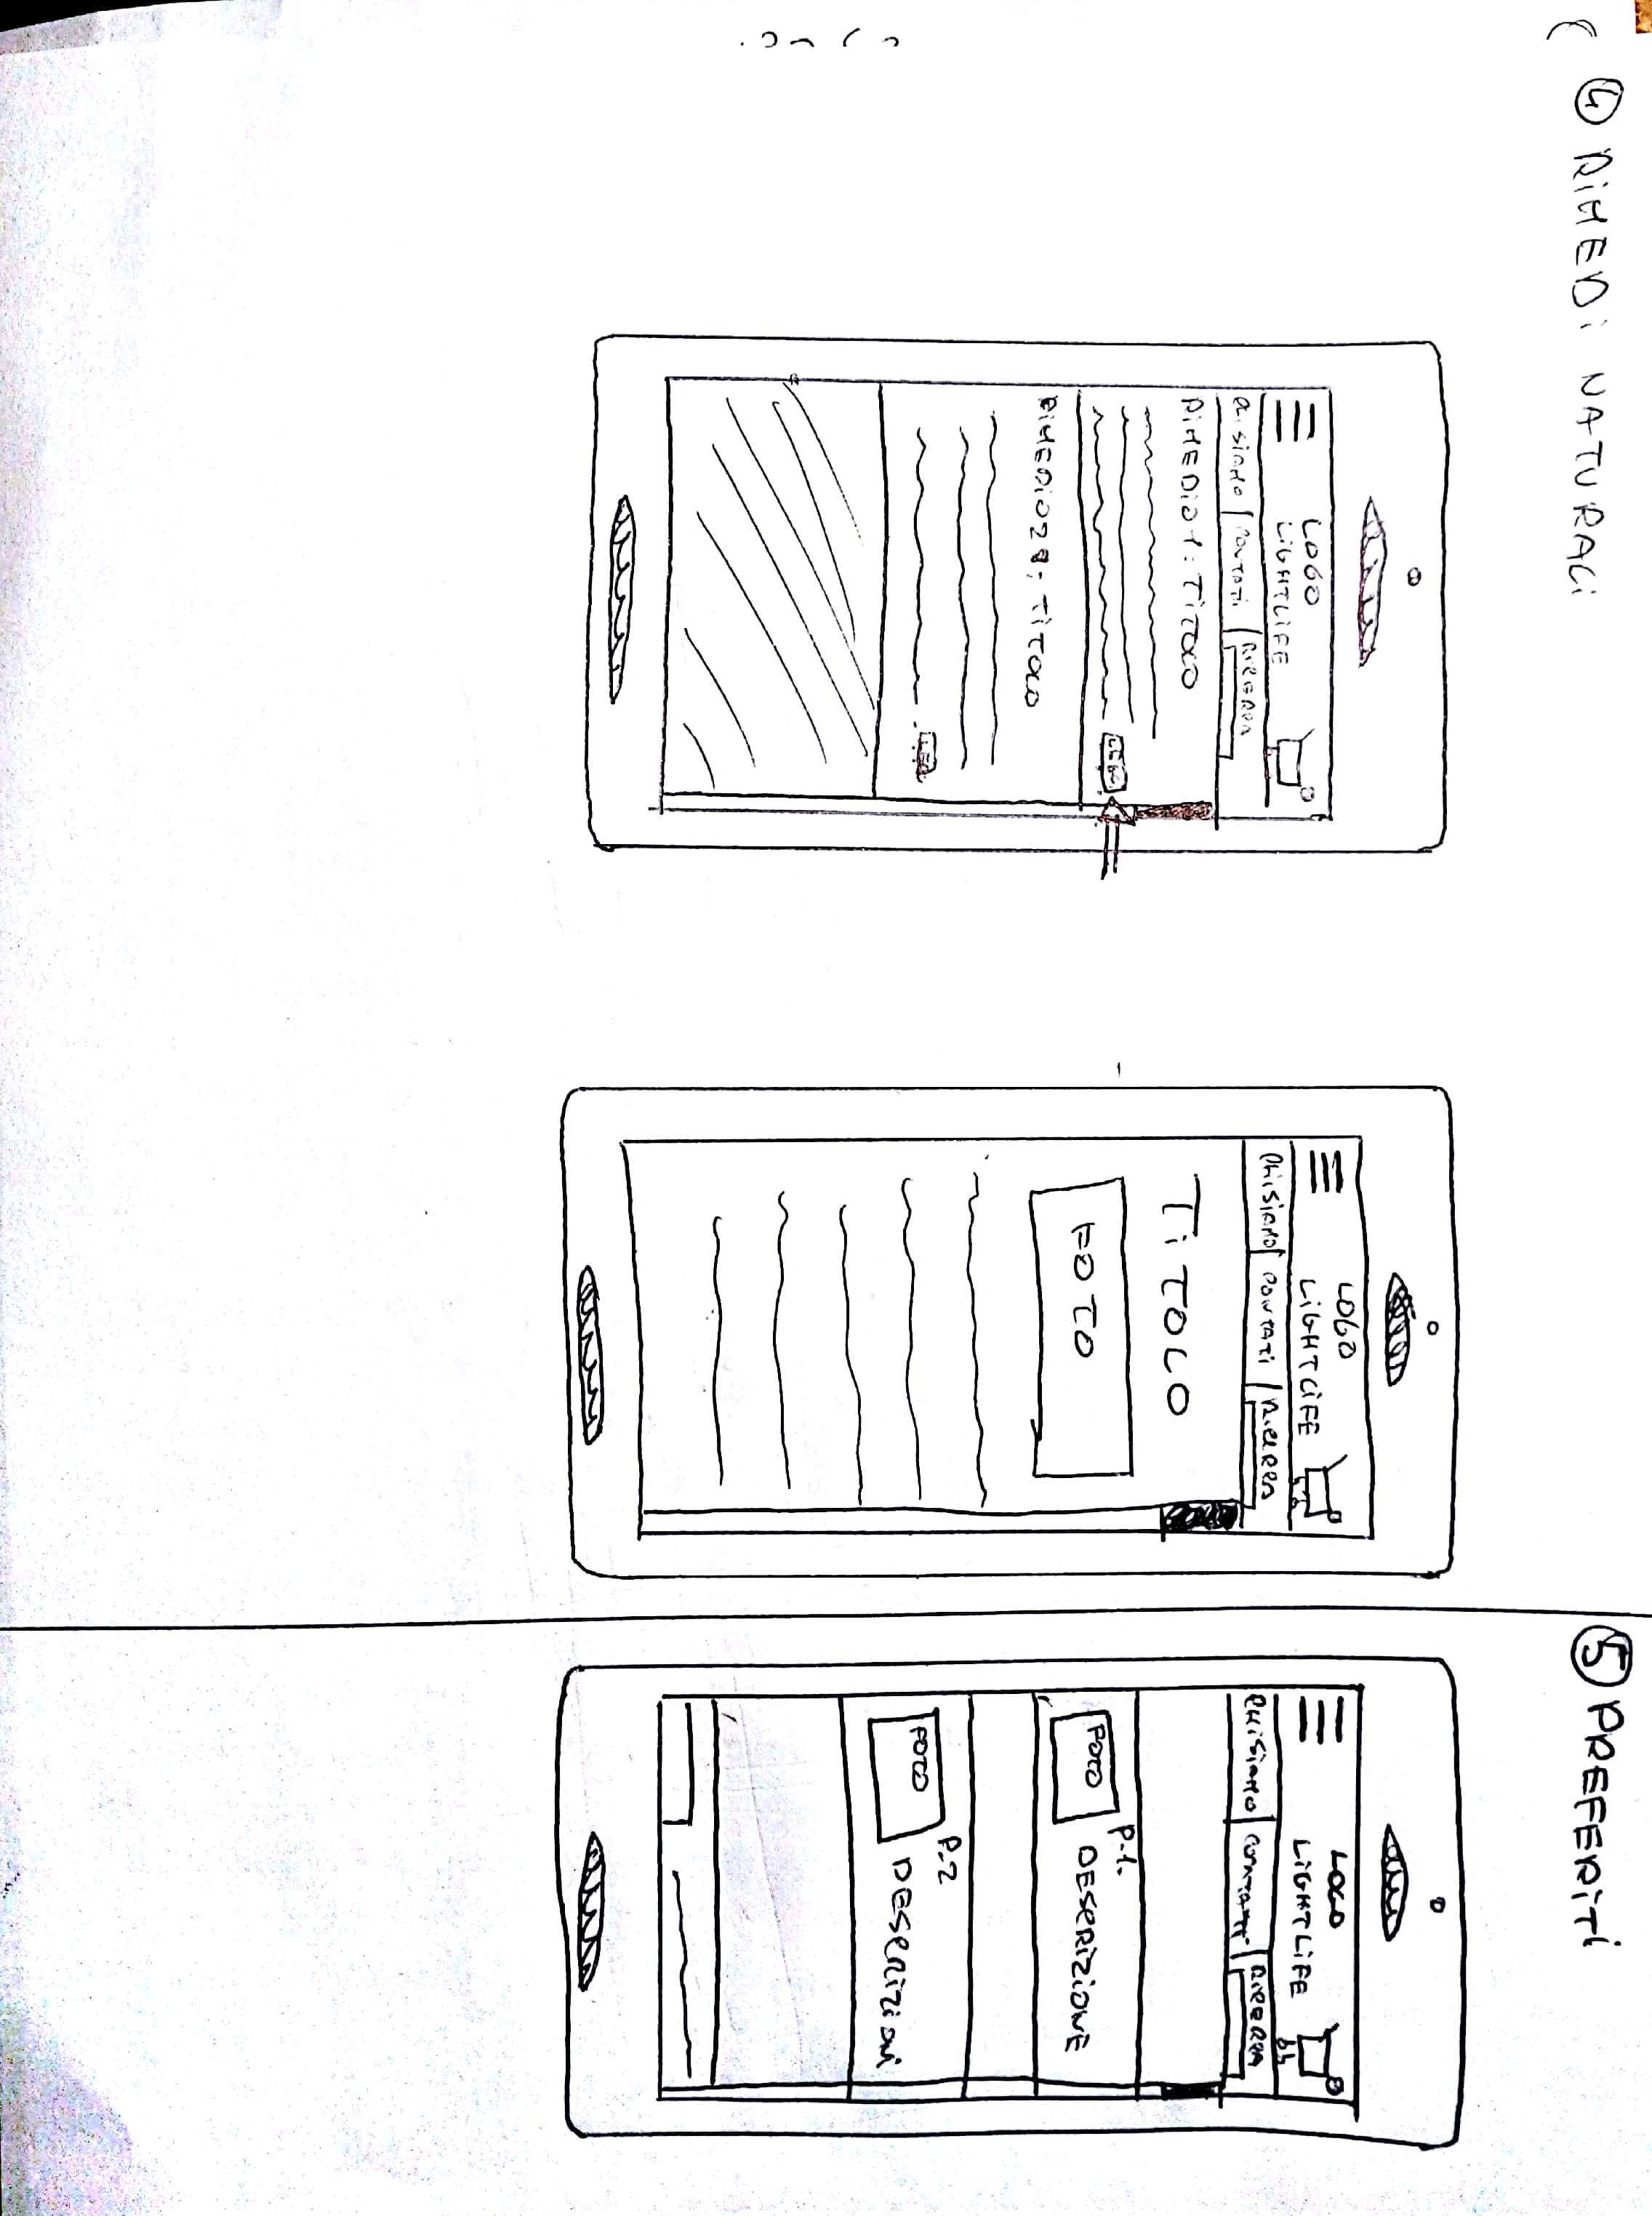 ④ RIMEDI NATURALI
LOGO
LIGHTLIFE
Chi siamo | Contatti | RICERCA
RIMEDIO 1: TITOLO
RIMEDIO 2: TITOLO
LOGO
LIGHTLIFE
Chi siamo | Contatti | RICERCA
TITOLO
FOTO
⑤ PREFERITI
LOGO
LIGHTLIFE
Chi siamo | Contatti | RICERCA
P.1.
FOTO
DESCRIZIONE
P.2
FOTO
DESCRIZIONI